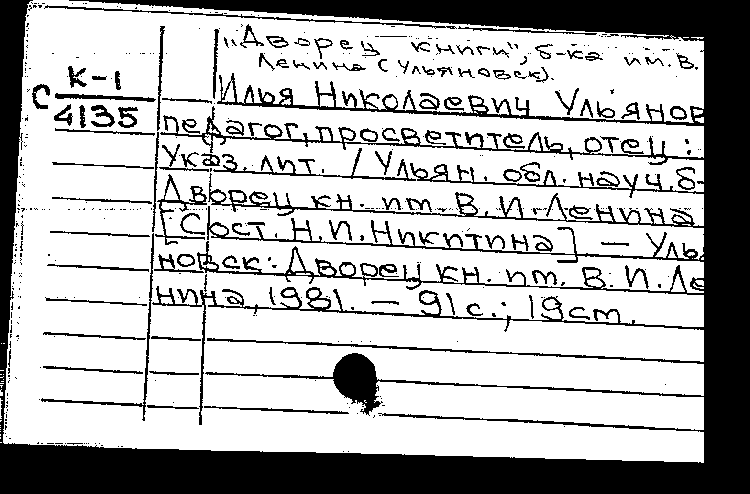 "Дворец книги", б-ка им. В.
Ленина (Ульяновск).
К-1
С
4135
Илья Николаевич Ульянов
педагог, просветитель, отец:
Указ. лит. / Ульян. обл. науч. б-
Дворец кн. им. В. И. Ленина
[Сост. Н. И. Никитина] — Улья
новск: Дворец кн. им. В. И. Ле
нина, 1981. — 91 с.; 19 см.